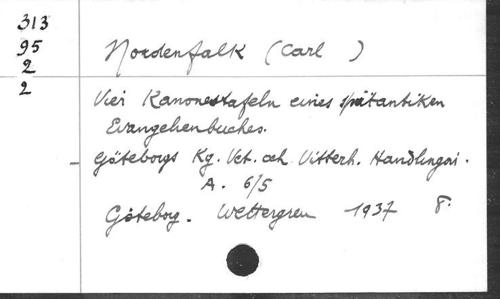 313
95
2
2
Nordenfalk (Carl )
Vier Kanonestafeln eines spätantiken
Evangelienbuches.
Göteborgs Kg. Vet. och Vitterh. Handlingar.
A. 6/5
Göteborg. Wettergren 1937 8°.